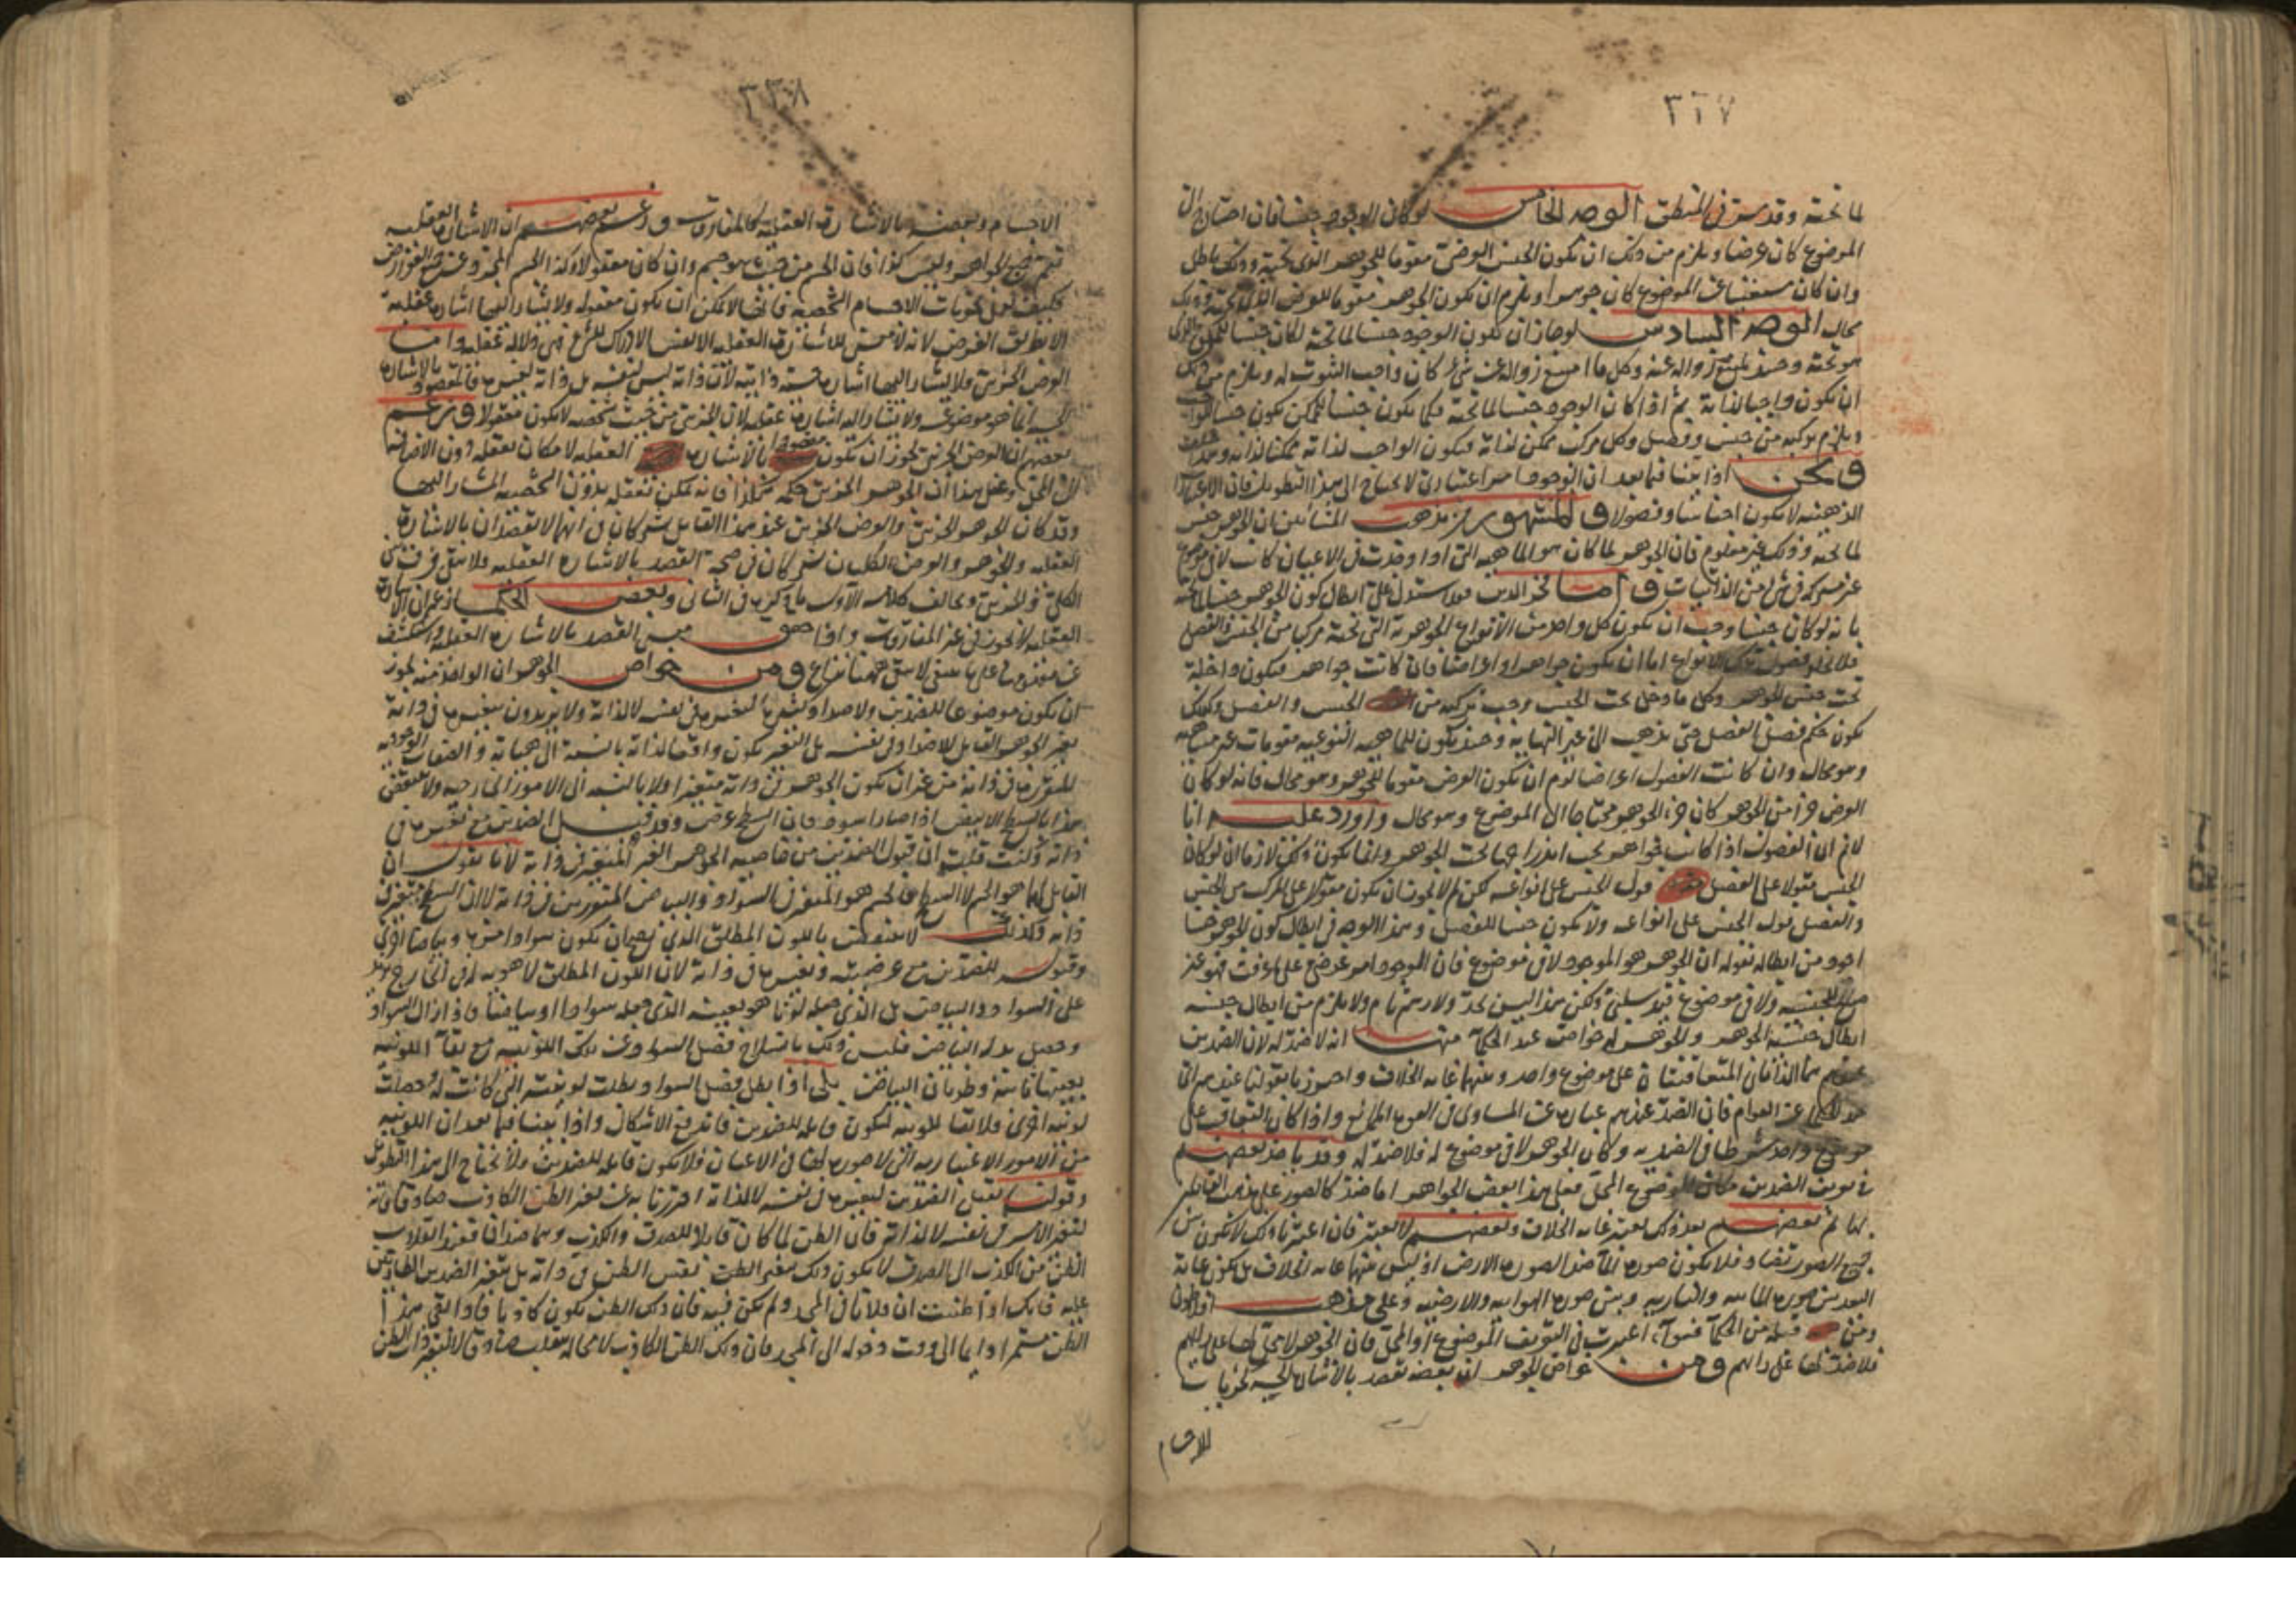 ٣٢٧
لما تحته وقد مر في المنطق الوجه الخامس لو كان الوجود جنسا فان احتاج الى
الموضوع كان عرضا ويلزم من ذلك ان يكون الجنس العرضي مقوما للجوهر الذي تحته وذلك باطل
وان كان مستغنيا عن الموضوع كان جوهرا ويلزم ان يكون الجوهر مقوما للعرض الذي تحته وذلك
محال الوجه السادس لو جاز ان يكون الوجود جنسا لما تحته لكان جنسا
هو تحته وحينئذ يمتنع زواله عنه وكل ما امتنع زواله عن شيء كان واجب الثبوت له ويلزم من ذلك
ان يكون واجبا لذاته ثم اذا كان الوجود جنسا لما تحته فكما يكون جنسا للممكن يكون جنسا للواجب
ويلزم تركبه من جنس وفصل وكل مركب ممكن لذاته فيكون الواجب لذاته ممكنا لذاته
ونحن اذا بينا فيما بعد ان الوجود امر اعتباري لا نحتاج الى هذا التطويل فان
الذهنية لا يكون اجناسا وفصولا والمشهور من مذهب المشائين ان الجوهر جنس
لما تحته وذلك غير معلوم فان الجوهر لما كان هو الماهية التي اذا وجدت في الاعيان كانت لا في موضوع
من الذاتيات واما فخر الدين فقد استدل على ابطال كون الجوهر جنسا لما تحته
بانه لو كان جنسا وجب ان يكون كل واحد من الانواع الجوهرية التي تحته مركبا من الجنس والفصل
فلا تخلو فصول تلك الانواع اما ان يكون جواهر او اعراضا فان كانت جواهر فيكون داخلة
تحت جنس الجوهر وكل ما دخل تحت الجنس وجب تركبه من الجنس والفصل وكذلك
يكون حكم فصل الفصل حتى يذهب الى غير النهاية وحينئذ يكون للماهية النوعية مقومات غير متناهية
وهو محال وان كانت الفصول اعراضا لزم ان يكون العرض مقوما للجوهر وهو محال فانه لو كان
العرض جزءا من الجوهر كان الجوهر محتاجا الى الموضوع وهو محال واورد عليه انا
لا نم ان الفصول اذا كانت جواهر يجب اندراجها تحت الجوهر وانما يكون ذلك لازما ان لو كان
الجنس مقولا على الفصل قول الجنس على انواعه لكن لم لا يجوز ان يكون مقولا على المركب من الجنس
والفصل قول الجنس على انواعه ولا يكون جنسا للفصل وهذا الوجه في ابطال كون الجوهر جنسا
اجود من ابطاله بقوله ان الجوهر هو الموجود لا في موضوع فان الوجود امر عرضي على ما عرفت فهو غير
للجنسية ولا في موضوع قيد سلبي ولكن هذا ليس بحد ولا رسم تام ولا يلزم من ابطال جنسية
ابطال جنسية الجوهر والجوهر له خواص عند الحكماء منها انه لا ضد له لان الضدين
عندهم هما الذاتان المتعاقبتان على موضوع واحد وبينهما غاية الخلاف
العوام فان الضد عندهم عبارة عن المساوي في القوة الممانع واذا كان التعاقب على
موضوع واحد شرطا في الضدية وكان الجوهر لا في موضوع له فلا ضد له وقد ياخذ بعضهم
في تعريف الضدين مكان الموضوع المحل فعلى هذا بعض الجواهر لها ضد كالصور
ثم بعضهم بعد ذلك يعتبر غاية الخلاف وبعضهم لا يعتبر فان اعتبرنا ذلك لا يكون بين
جميع الصور تضاد فلا يكون صورة الماء ضد الصورة الارض اذ ليس بينهما غاية الخلاف بل يكون غاية
البعد بين صورة المائية والنارية وبين صورة الهوائية والارضية وعلى مذهب افلاطون
ومن قبله من الحكماء سواء اعتبرت في التعريف الموضوع او المحل فان الجوهر
فلا ضد لها على رايهم ومن خواص الجوهر ان بعضه يقصد بالاشارة الحسية كجزئيات
الاجسام
٣٢٨
الاجسام وبعضه بالاشارة العقلية كالمفارقات وزعم بعضهم ان الاشارة العقلية
تعم جميع الجواهر وليس كذا فان الجسم من حيث هو جسم وان كان معقولا وكذا الجسم المجرد عن جميع العوارض
فكيف تعقل بجزئيات الاجسام الشخصية فانها لا يمكن ان يكون معقولة ولا يشار اليها اشارة عقلية
الا بطريق العرض لانه لا معنى للاشارة العقلية الا نفس الادراك واما
العرض الجزئي فلا يشار اليها اشارة حسية ذاتية لان ذاته ليس لنفسه بل ذاته لغيره فالمقصود بالاشارة
الحسية انما هو موضوعه ولا يشار اليه اشارة عقلية لان الجزئي من حيث شخصه لا يكون معقولا وزعم
بعضهم ان العرض الجزئي يجوز ان يكون مقصودا بالاشارة العقلية لامكان تعقله دون الاضافة
الى المحل وعلى هذا ان الجوهر الجزئي حكمه هكذا فانه يمكن تعقله بدون الشخصية المشار اليها
وقد كان الجوهر الجزئي والعرض الجزئي عند هذا القائل مشتركان في انهما لا يقصدان بالاشارة
العقلية والجوهر والعرض الكليان مشتركان في صحة القصد بالاشارة العقلية ولا يبقى فرق بين
الكلي والجزئي ويخالف كلامه الاول ما ذكره في الثاني وبعض الحكماء زعم ان الاشارة
العقلية لا تجوز في غير المفارقات واذا حقق معنى القصد بالاشارة العقلية وانكشف
لا يبقى ههنا نزاع ومن خواص الجوهر ان الواحد منه يجوز
ان يكون موضوعا للضدين ولاضداد كثيرة لتغيره في نفسه لا لذاته ولا يريدون بتغيره في ذاته
تغير الجوهر القابل للاضداد في نفسه بل التغير يكون واقعا لذاته بالنسبة الى هيئاته والصفات الموجودة
المتقررة في ذاته من غير ان يكون الجوهر في ذاته متغيرا ولا بالنسبة الى الامور الخارجية ولا ينتقض
هذا بالسطح الابيض اذا صار اسود فان السطح عرض وقد قبل الضدين مع تغيره في
ذاته وكنت قلت ان قبول الضدين من خاصية الجوهر الغير المتغير في ذاته لانا نقول ان
القابل لهما هو الجسم لا السطح فالجسم هو المتغير في السواد والبياض المتقررين في ذاته لا ان السطح متغير في
ذاته وكذلك لا ينتقض باللون المطلق الذي يصح ان يكون سوادا مرة وبياضا اخرى
وقبوله للضدين مع عرضيته وتغيره في ذاته لان اللون المطلق لا هوية له في الخارج
على السواد والبياض بل الذي جعله لونا هو بعينه الذي جعله سوادا او بياضا فاذا زال السواد
وحصل بدله البياض فليس ذلك بانسلاخ فصل السواد عن تلك اللونية مع بقاء اللونية
بعينها ثابتة وطريان البياض بل اذا بطل فصل السواد وبطلت لونيته التي كانت له وحصلت
لونية اخرى فلا بقاء للونية لتكون قابلة للضدين فاندفع الاشكال واذا بينا فيما بعد ان اللونية
من الامور الاعتبارية التي لا صورة لها في الاعيان فلا يكون قابلة للضدين فلا نحتاج الى هذا التطويل
وقولنا يقبل الضدين لتغيره في نفسه لا لذاته احترزنا به عن تغير الظن الكاذب صادقا فانه
لتغير الامر في نفسه لا لذاته فان الظن لما كان قابلا للصدق والكذب وهما ضدان فعند انقلاب
الظن من الكذب الى الصدق لا يكون ذلك بتغير الظن نفس الظن في ذاته بل بتغير الضدين الطارئين
عليه فانك اذا ظننت ان فلانا في الحمام ولم يكن فيه فان ذلك الظن يكون كاذبا فاذا بقي هذا
الظن مستمرا دائما الى وقت دخوله الى الحمام فان ذلك الظن الكاذب لا محالة ينقلب صادقا لا لتغير ذات الظن